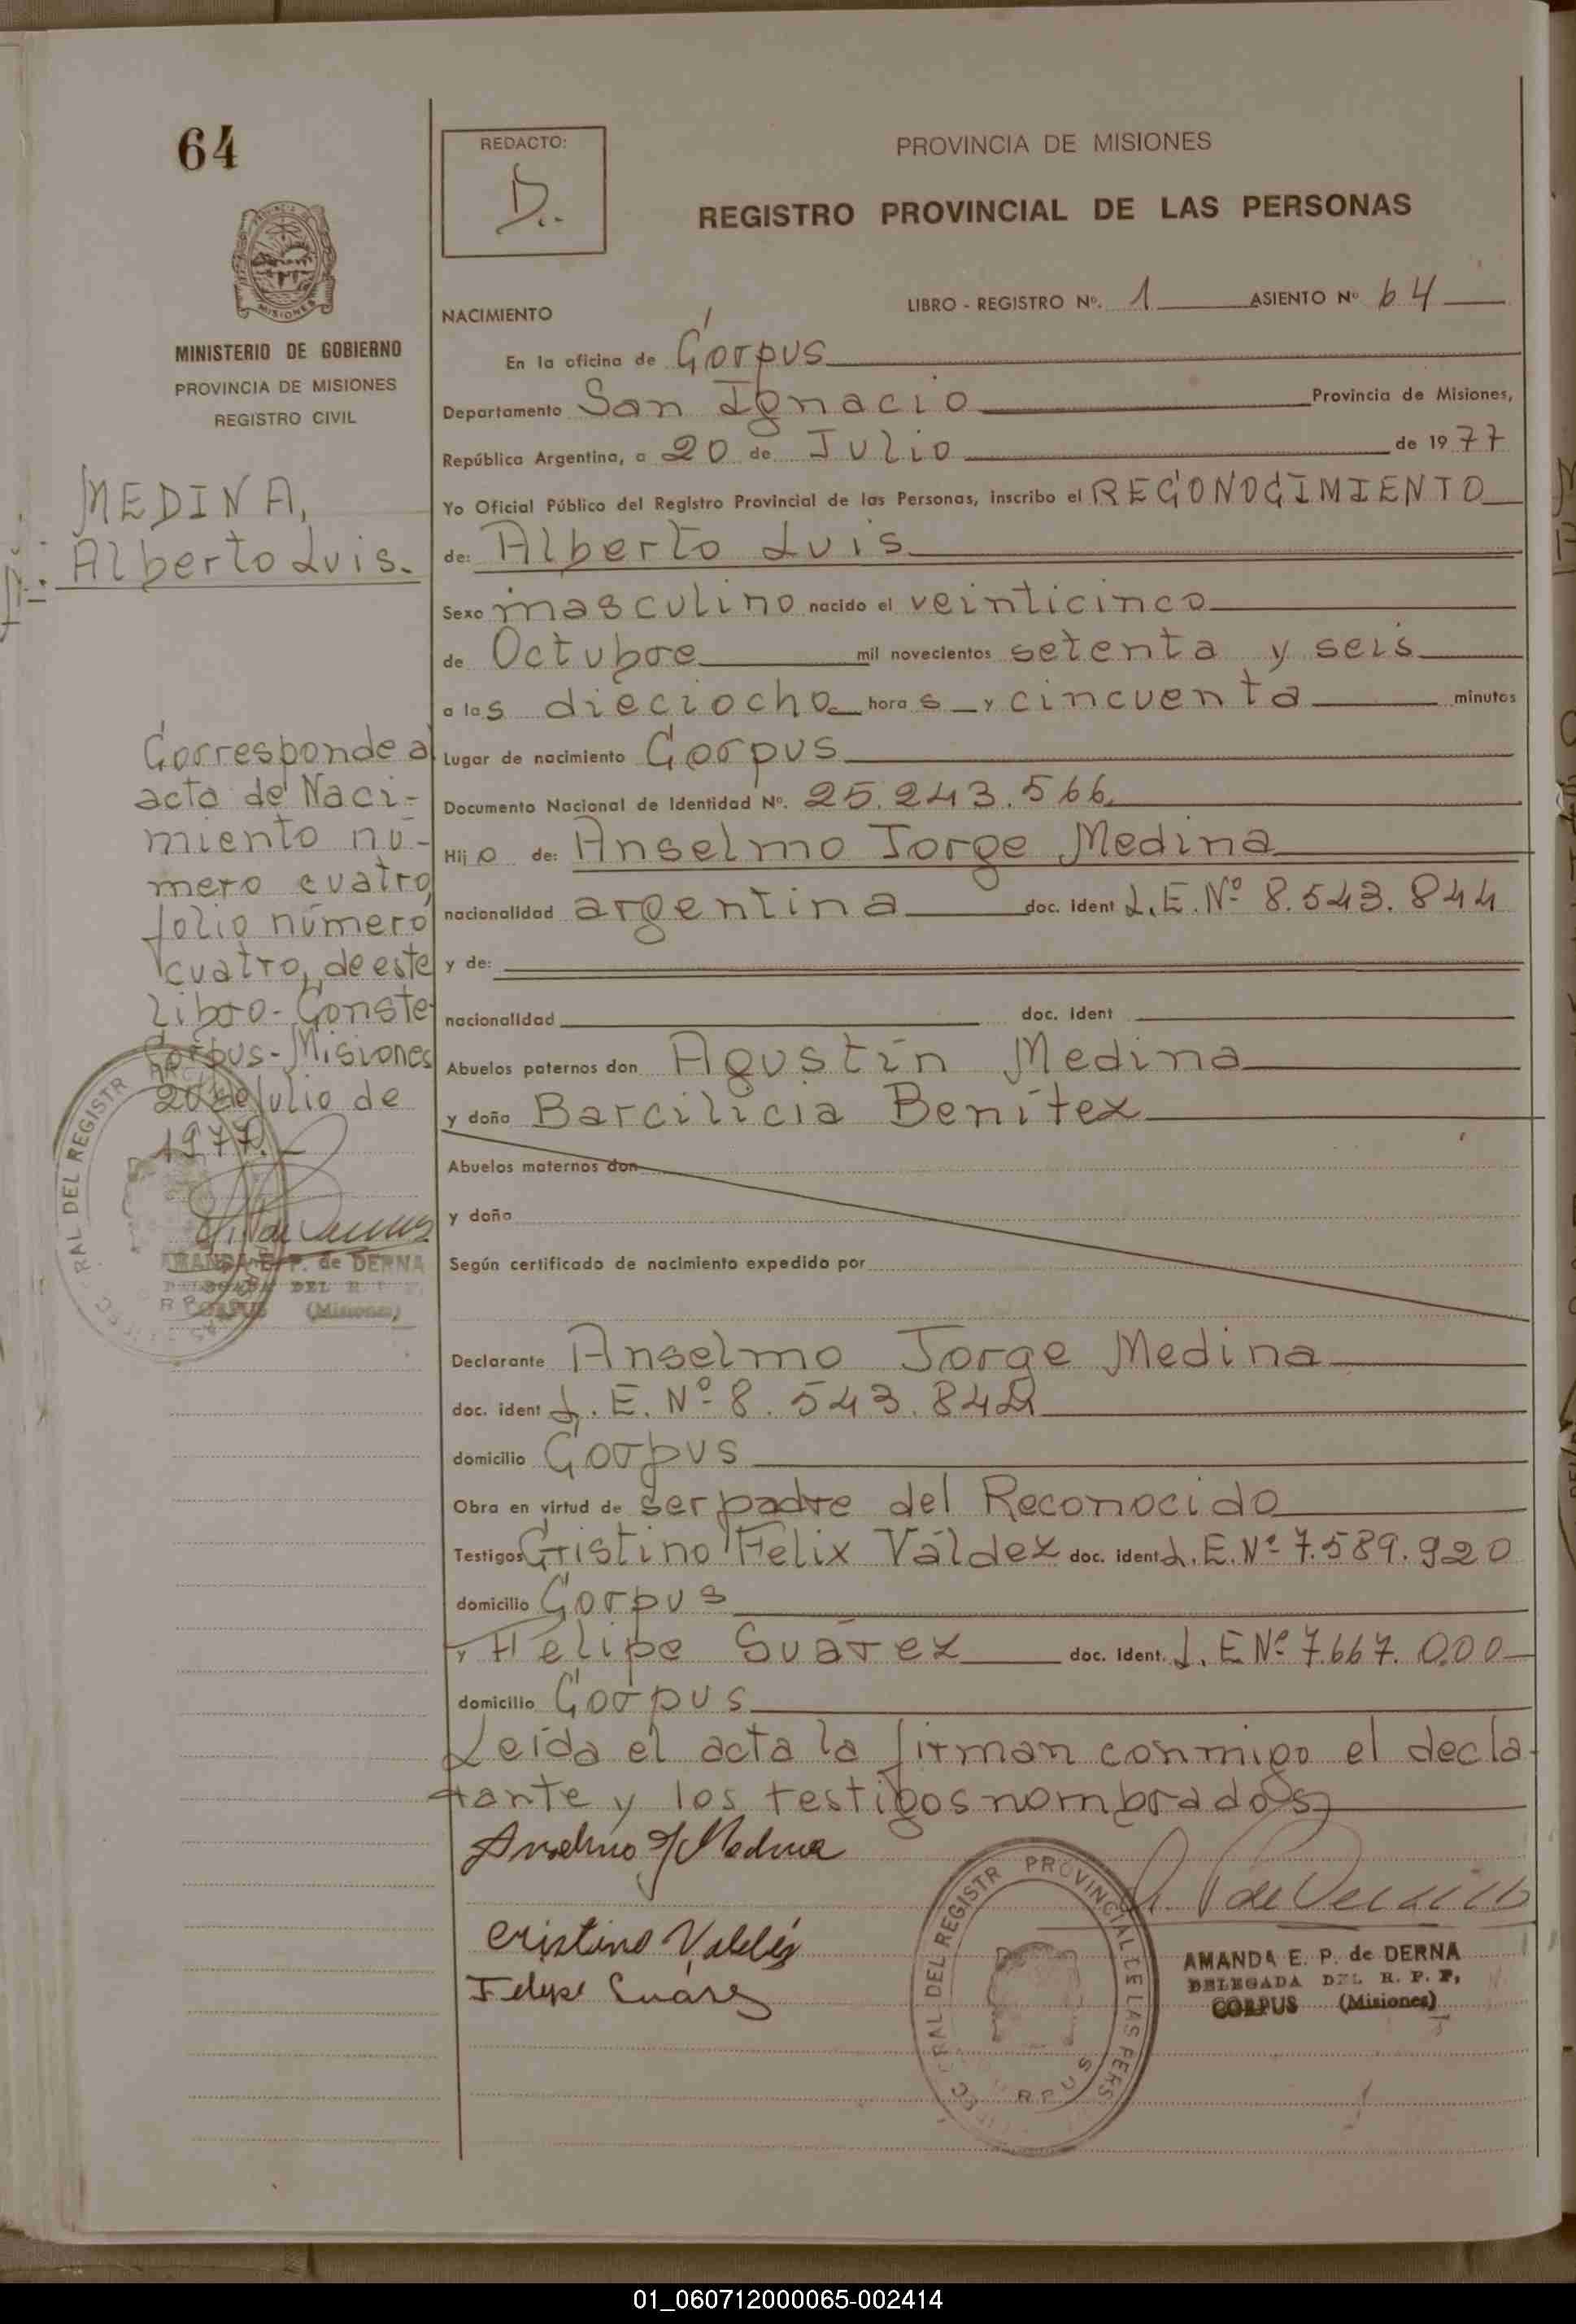 64
REDACTO:
D..
PROVINCIA DE MISIONES
REGISTRO PROVINCIAL DE LAS PERSONAS
MISIONES
MINISTERIO DE GOBIERNO
PROVINCIA DE MISIONES
REGISTRO CIVIL
MEDINA,
Alberto Luis.
Corresponde a
acta de Naci-
miento nú-
mero cuatro,
folio número
cuatro, de este
Libro - Conste
Corpus - Misiones
20 de Julio de
1977.-
AMANDA E. P. de DERNA
DELEGADA DEL R. P. P,
CORPUS (Misiones)
NACIMIENTO
LIBRO - REGISTRO Nº. 1 ASIENTO Nº 64
En la oficina de Corpus
Departamento San Ignacio Provincia de Misiones,
República Argentina, a 20 de Julio de 1977
Yo Oficial Público del Registro Provincial de las Personas, inscribo el RECONOCIMIENTO
de: Alberto Luis
Sexo masculino nacido el veinticinco
de Octubre mil novecientos setenta y seis
a las dieciocho horas y cincuenta minutos
Lugar de nacimiento Corpus
Documento Nacional de Identidad Nº. 25.243.566
Hijo de: Anselmo Jorge Medina
nacionalidad argentina doc. ident L.E. Nº 8.543.844
y de:
nacionalidad doc. ident
Abuelos paternos don Agustín Medina
y doña Barcilicia Benítez
Abuelos maternos don
y doña
Según certificado de nacimiento expedido por
Declarante Anselmo Jorge Medina
doc. ident L.E. Nº 8.543.844
domicilio Corpus
Obra en virtud de ser padre del Reconocido
Testigos Cristino Félix Váldez doc. ident L.E. Nº 7.589.920
domicilio Corpus
y Felipe Suárez doc. ident. L.E Nº 7.667.000
domicilio Corpus
Leída el acta la firman conmigo el decla-
rante y los testigos nombrados
Anselmo J Medina
Cristino Valdéz
Felipe Suárez
REGISTR PROVINCIAL DE LAS PERS
AMANDA E. P. de DERNA
DELEGADA DEL R. P. P,
CORPUS (Misiones)
01_060712000065-002414